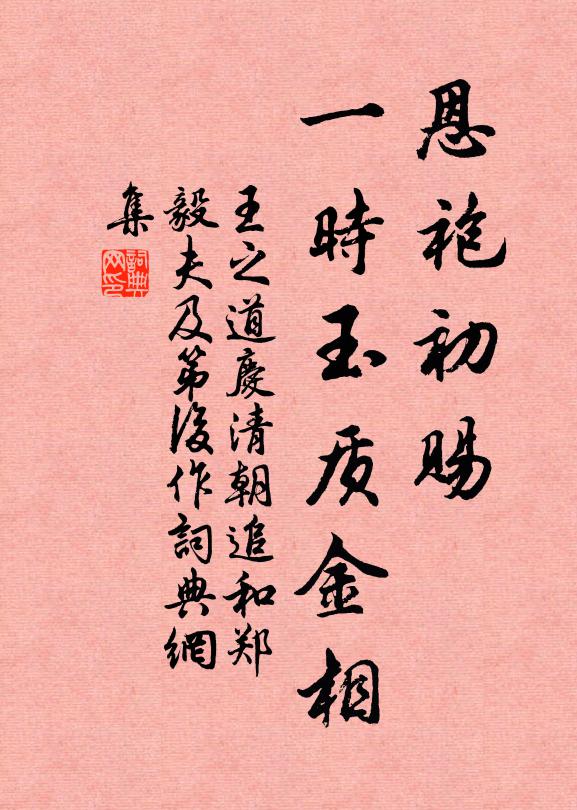 恩袍初赐
一時玉质金相
王之道慶清朝追和郑
毅夫及第後作詞典網
集
詞典网印